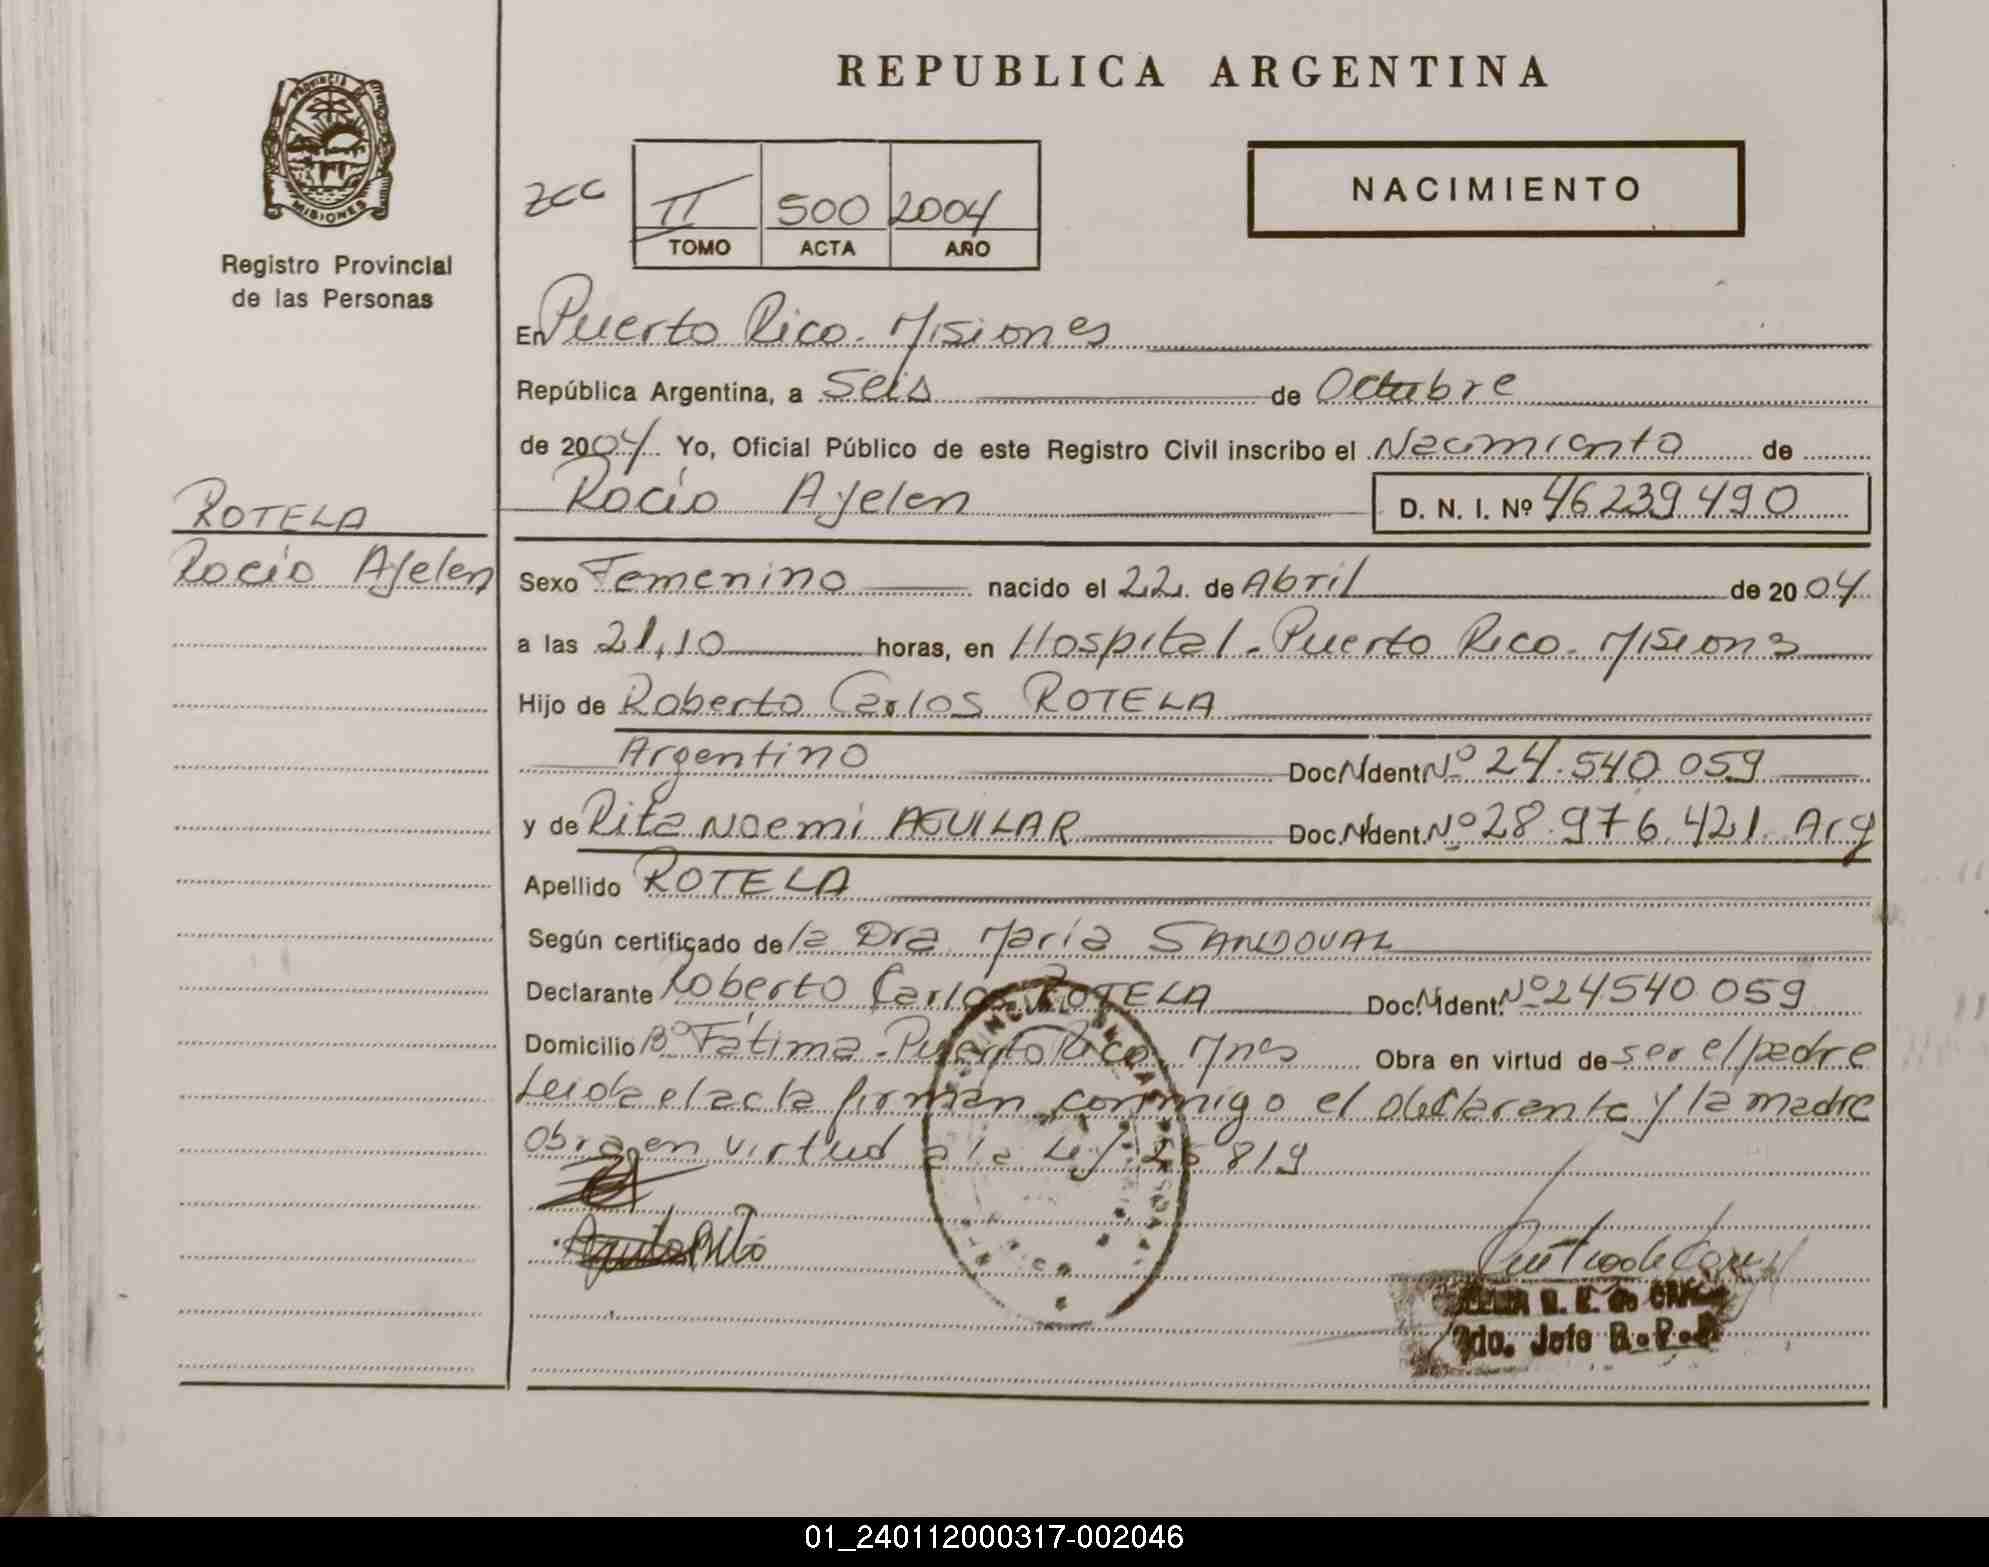 REPUBLICA ARGENTINA
PROVINCIA DE
MISIONES
Registro Provincial
de las Personas
zcc
II 500 2004
TOMO ACTA AÑO
NACIMIENTO
En Puerto Rico - Misiones
República Argentina, a Seis de Octubre
de 2004 Yo, Oficial Público de este Registro Civil inscribo el Nacimiento de
Rocío Ayelen D. N. I. Nº 46239490
ROTELA
Rocío Ayelen
Sexo Femenino nacido el 22 de Abril de 2004
a las 21,10 horas, en Hospital - Puerto Rico - Misiones
Hijo de Roberto Carlos ROTELA
Argentino Doc. N Ident. Nº 24.540.059
y de Rita Noemi AGUILAR Doc. N Ident. Nº 28.976.421 Arg
Apellido ROTELA
Según certificado de la Dra María SANDOVAL
Declarante Roberto Carlos ROTELA Doc. N Ident. Nº 24540.059
Domicilio Bº Fátima - Puerto Rico - Mnes Obra en virtud de ser el padre
Leida el acta firman conmigo el declarante y la madre
Obra en virtud a la Ley 25819
2do. Jefe R.P.P
01_240112000317-002046